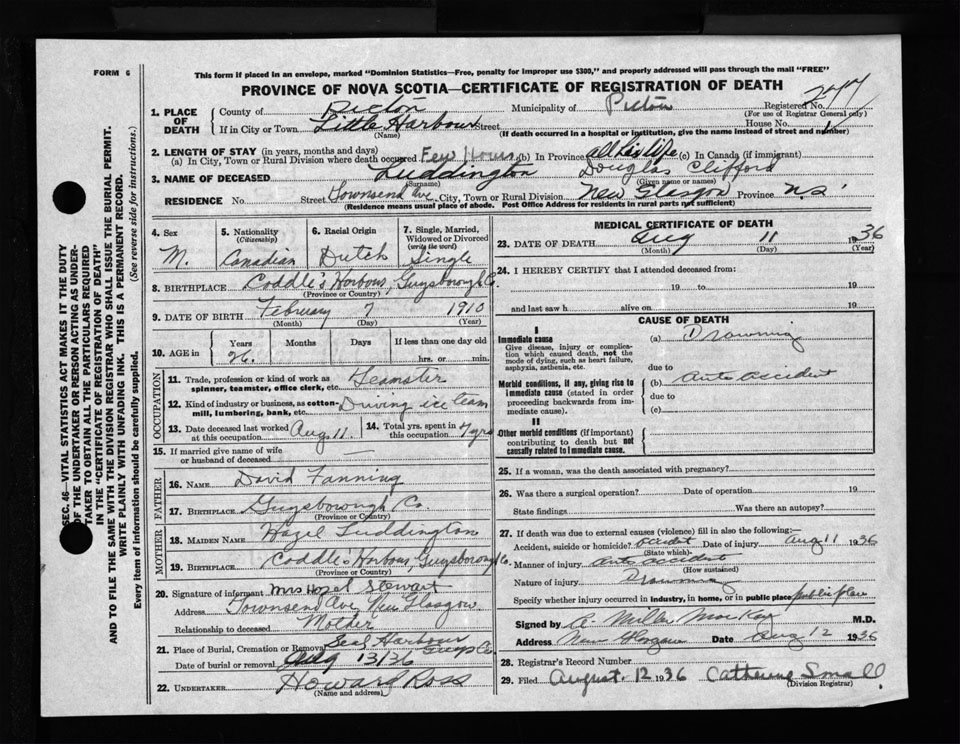 FORM 6
This form if placed in an envelope, marked "Dominion Statistics—Free, penalty for improper use $300," and properly addressed will pass through the mail "FREE"
PROVINCE OF NOVA SCOTIA—CERTIFICATE OF REGISTRATION OF DEATH
1. PLACE OF DEATH
County of Pictou Municipality of Pictou Registered No.
(For use of Registrar General only)
If in City or Town Little Harbour Street House No.
(Name) (If death occurred in a hospital or institution, give the name instead of street and number)
2. LENGTH OF STAY (in years, months and days)
(a) In City, Town or Rural Division where death occurred Few Hours (b) In Province all his life (c) In Canada (if immigrant)
3. NAME OF DECEASED Luddington Douglas Clifford
(Surname) (Given name or names)
RESIDENCE No. Street Townsend Ave. City, Town or Rural Division New Glasgow Province N.S.
(Residence means usual place of abode. Post Office Address for residents in rural parts not sufficient)
4. Sex M.
5. Nationality (Citizenship) Canadian
6. Racial Origin Dutch
7. Single, Married, Widowed or Divorced (write the word) Single
8. BIRTHPLACE Coddle's Harbour, Guysborough Co.
(Province or Country)
9. DATE OF BIRTH February 7 1910
(Month) (Day) (Year)
10. AGE in Years 26. Months Days If less than one day old hrs. or min.
OCCUPATION
11. Trade, profession or kind of work as spinner, teamster, office clerk, etc. Teamster
12. Kind of industry or business, as cotton-mill, lumbering, bank, etc. Driving ice team
13. Date deceased last worked at this occupation Aug 11.
14. Total yrs. spent in this occupation 7 yrs
15. If married give name of wife or husband of deceased —
FATHER
16. NAME David Fanning
17. BIRTHPLACE Guysborough Co.
(Province or Country)
MOTHER
18. MAIDEN NAME Hazel Luddington
19. BIRTHPLACE Coddle's Harbour, Guysborough Co.
(Province or Country)
20. Signature of informant Mrs Hazel Stewart
Address Townsend Ave New Glasgow
Relationship to deceased Mother
21. Place of Burial, Cremation or Removal Seal Harbour Guys Co.
Date of burial or removal Aug 13/36
22. UNDERTAKER Howard Ross
(Name and address)
MEDICAL CERTIFICATE OF DEATH
23. DATE OF DEATH Aug 11 1936
(Month) (Day) (Year)
24. I HEREBY CERTIFY that I attended deceased from:
19 to 19
and last saw h alive on 19
CAUSE OF DEATH
I
Immediate cause
Give disease, injury or complication which caused death, not the mode of dying, such as heart failure, asphyxia, asthenia, etc.
(a) Drowning
due to
Morbid conditions, if any, giving rise to immediate cause (stated in order proceeding backwards from immediate cause).
(b) Auto accident
due to
(c)
II
Other morbid conditions (if important) contributing to death but not causally related to Immediate cause.
25. If a woman, was the death associated with pregnancy?
26. Was there a surgical operation? Date of operation 19
State findings Was there an autopsy?
27. If death was due to external causes (violence) fill in also the following:—
Accident, suicide or homicide? Accident Date of injury Aug 11 1936
(State which)
Manner of injury Auto accident
(How sustained)
Nature of injury Drowning
Specify whether injury occurred in industry, in home, or in public place public place
Signed by A. Miller MacKay M.D.
Address New Glasgow Date Aug 12 1936
28. Registrar's Record Number
29. Filed August. 12 1936 Catherine Small.
(Division Registrar)
SEC. 46—VITAL STATISTICS ACT MAKES IT THE DUTY
OF THE UNDERTAKER OR PERSON ACTING AS UNDER-
TAKER TO OBTAIN ALL THE PARTICULARS REQUIRED
IN THE "CERTIFICATE OF REGISTRATION OF DEATH"
AND TO FILE THE SAME WITH THE DIVISION REGISTRAR WHO SHALL ISSUE THE BURIAL PERMIT.
WRITE PLAINLY WITH UNFADING INK. THIS IS A PERMANENT RECORD.
Every item of information should be carefully supplied. (See reverse side for instructions.)